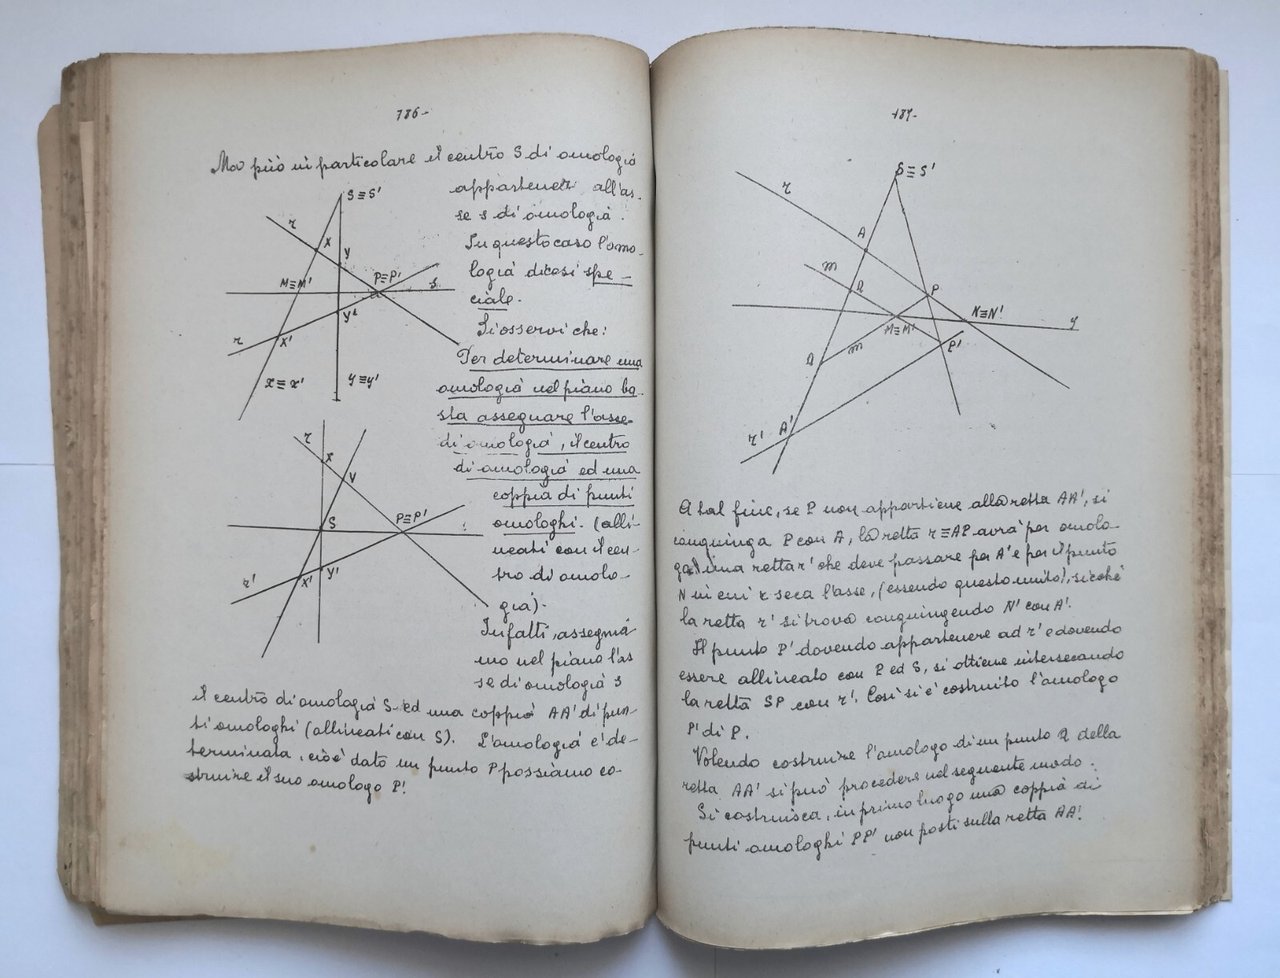 186-
Ma può in particolare il centro S di omologia
appartenere all'as-
se s di omologia.
In questo caso l'omo-
logia dicesi spe-
ciale.
Si osservi che:
Per determinare una
omologia nel piano ba-
sta assegnare l'asse
di omologia, il centro
di omologia ed una
coppia di punti
omologhi. (alli-
neati con il cen-
tro di omolo-
gia).
Infatti, assegnia
mo nel piano l'as
se di omologia s
il centro di omologia S ed una coppia AA' di pun-
ti omologhi (allineati con S). L'omologia è de-
terminata, cioè dato un punto P possiamo co-
struire il suo omologo P'.
S≡S'
r
X
Y
M≡M'
P≡P'
s
Y'
r
X'
x≡x'
y≡y'
r
X
Y
S
P≡P'
r'
X'
Y'
187-
S≡S'
r
A
m
Q
P
M≡M'
N≡N'
y
Q
m
P'
r'
A'
A tal fine, se P non appartiene alla retta AA', si
congiunga P con A, la retta r≡AP avrà per omolo-
ga una retta r' che deve passare per A' e per il punto
N in cui r seca l'asse, (essendo questo unito), sicché
la retta r' si trova congiungendo N' con A'.
Il punto P' dovendo appartenere ad r' e dovendo
essere allineato con P ed S, si ottiene intersecando
la retta SP con r'. Così si è costruito l'omologo
P' di P.
Volendo costruire l'omologo di un punto Q della
retta AA' si può procedere nel seguente modo:
Si costruisca, in primo luogo una coppia di
punti omologhi PP' non posti sulla retta AA'.